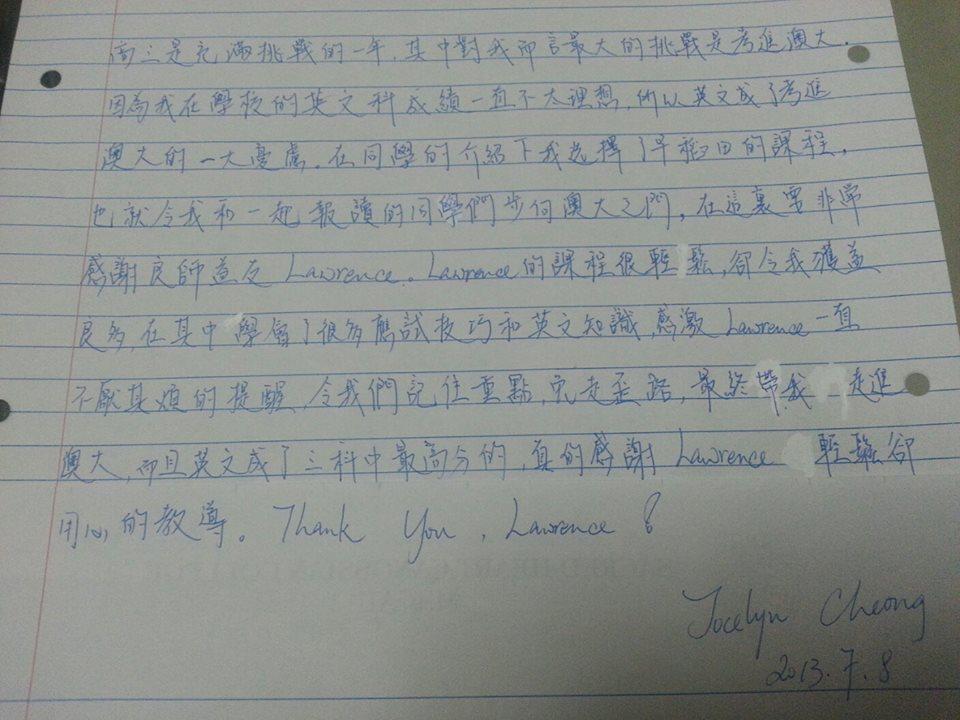 高三是充滿挑戰的一年,其中對我而言最大的挑戰是考進澳大.
因為我在學校的英文科成績一直不太理想,所以英文成了考進
澳大的一大憂慮.在同學的介紹下我选擇了早稻田的課程,
也就令我和一起報讀的同學們步向澳大之門,在這裏要非常
感謝良師益友 Lawrence. Lawrence的課程很輕鬆,卻令我獲益
良多,在其中學會了很多應試技巧和英文知識,感激 Lawrence一直
不厭其煩的提醒,令我們記住重點,免走歪路,最終帶我走進
澳大,而且英文成了三科中最高分的,真的感謝 Lawrence 輕鬆卻
用心的教導。Thank You, Lawrence!
Jocelyn Cheong
2013.7.8